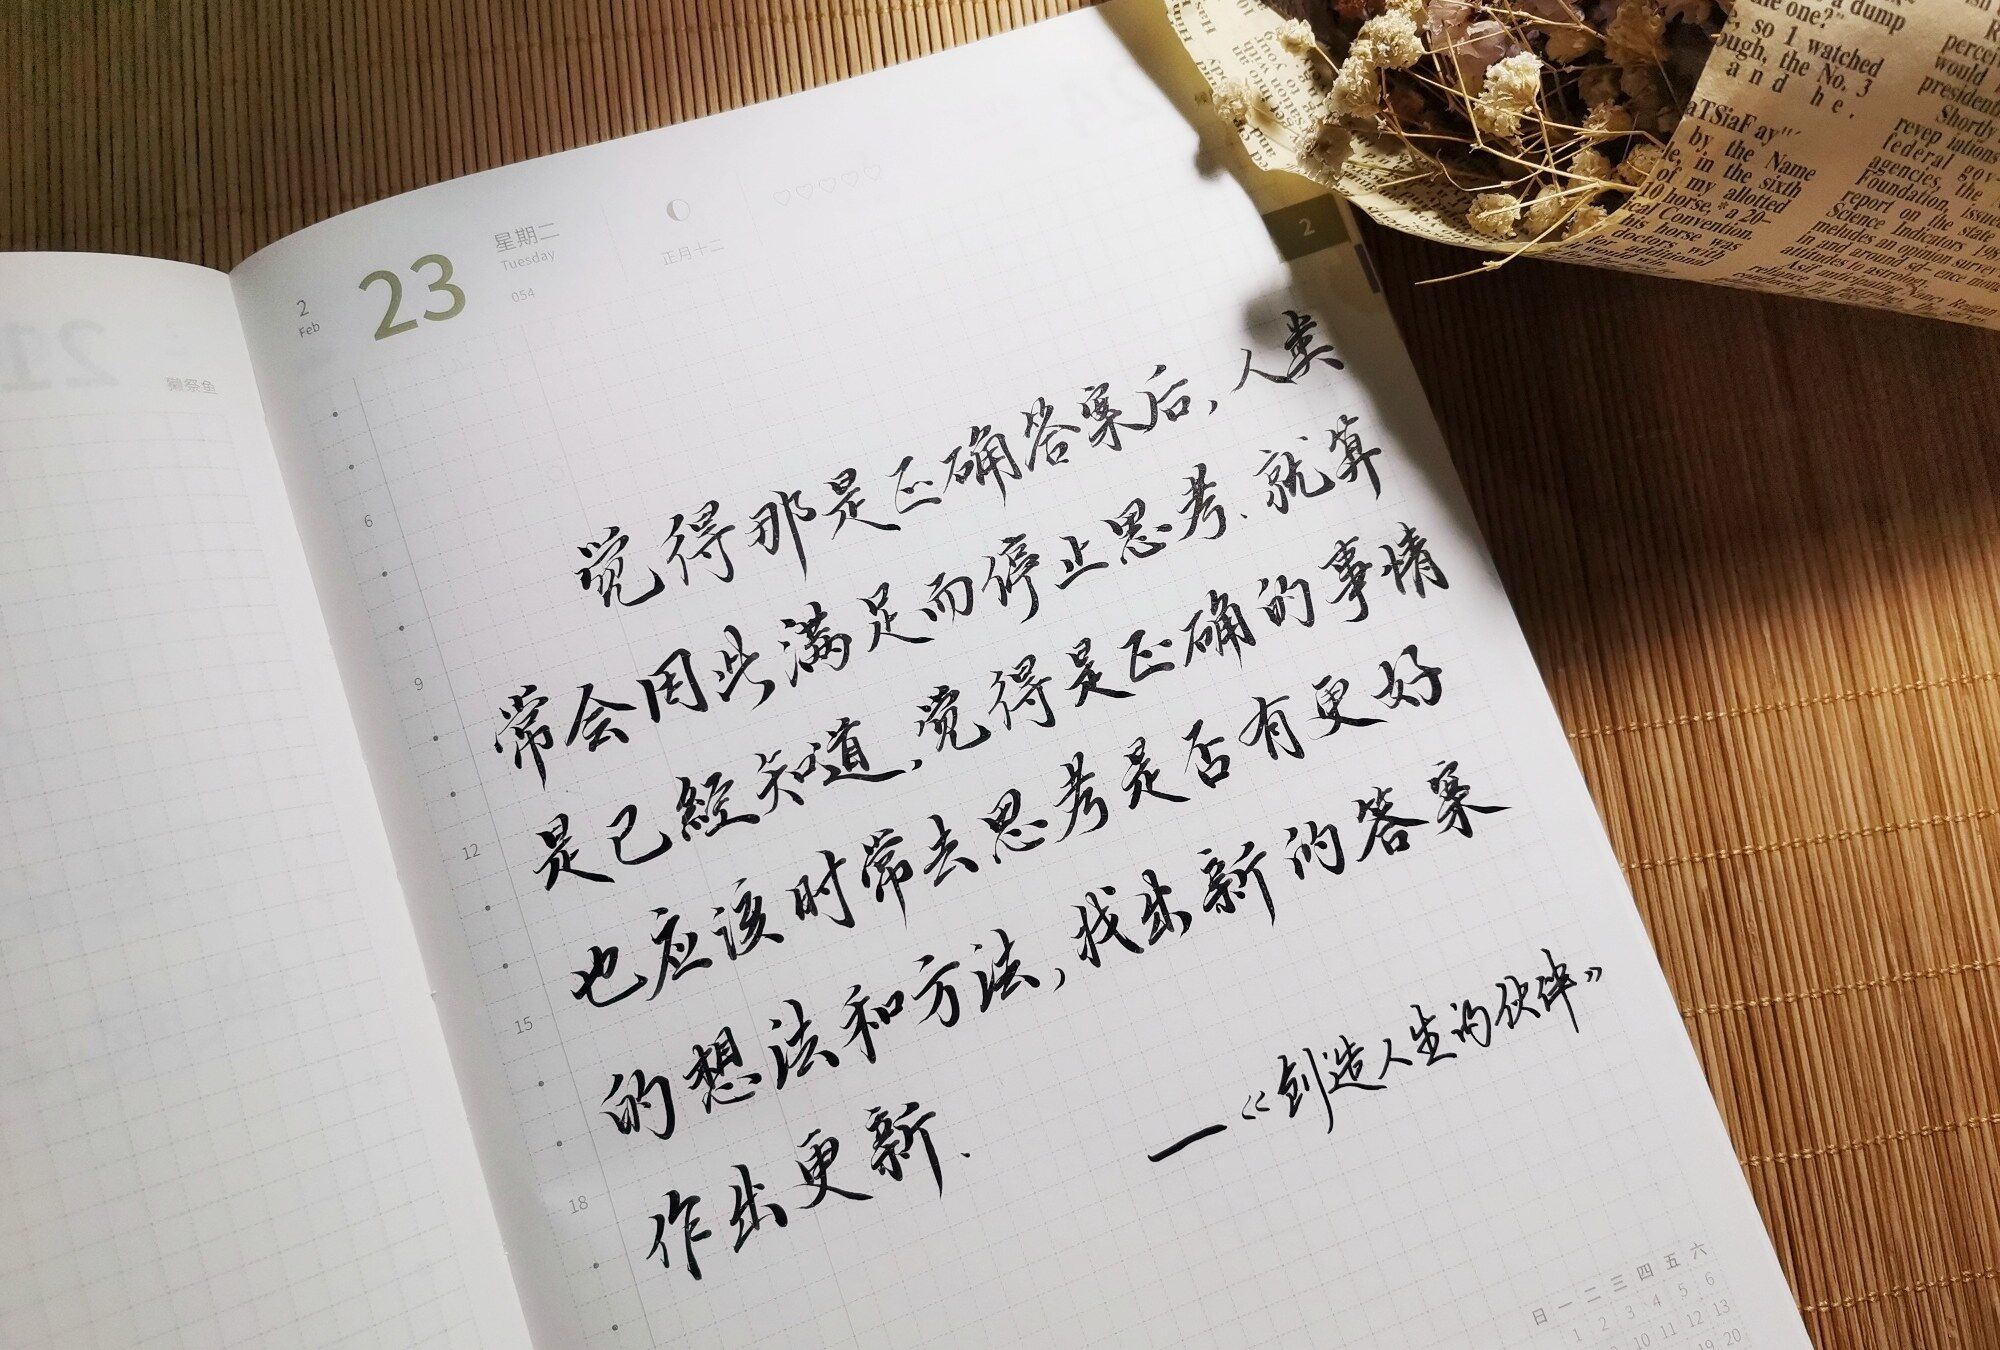 2
Feb
23
星期二
Tuesday
054
正月十二
♡♡♡♡♡
2
21
獭祭鱼
6
9
12
15
18
觉得那是正确答案后，人类
常会因此满足而停止思考.就算
是已經知道，觉得是正确的事情
也应该时常去思考是否有更好
的想法和方法，找出新的答案
作出更新.
—《创造人生的伙伴》
日 一 二 三 四 五 六
1 2 3 4 5 6
10 11 12 13
19 20
a dump
the one?"
e, so I watched
ough, the No. 3
and he.
aTSiaF ay"
by the Name
le, in the sixth
of my allotted
10 horse, a 20-
ical Convention.
his horse was
doctors with
for zenditional
perceiv
would
president
Shortly
revep iations
federal gov-
agencies, the N
Foundation, issued
report on the state
Science Indicators 198
meludes an opinion survey
in and around sd-ence mon
attitudes to astrology,
Asif anticipating Nancy Reagan